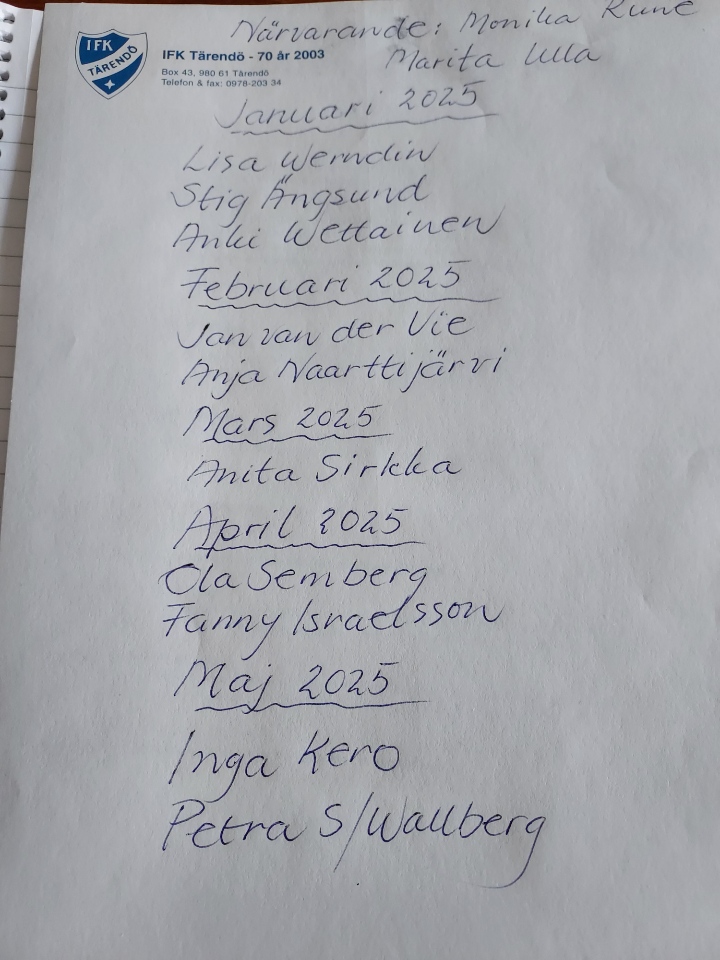 Närvarande: Monika Rune
Marita Ulla
IFK
TÄRENDÖ
IFK Tärendö - 70 år 2003
Box 43, 980 61 Tärendö
Telefon & fax: 0978-203 34
Januari 2025
Lisa Werndin
Stig Ängsund
Anki Wettainen
Februari 2025
Jan van der Vie
Anja Naarttijärvi
Mars 2025
Anita Sirkka
April 2025
Ola Semberg
Fanny Israelsson
Maj 2025
Inga Kero
Petra S/Wallberg